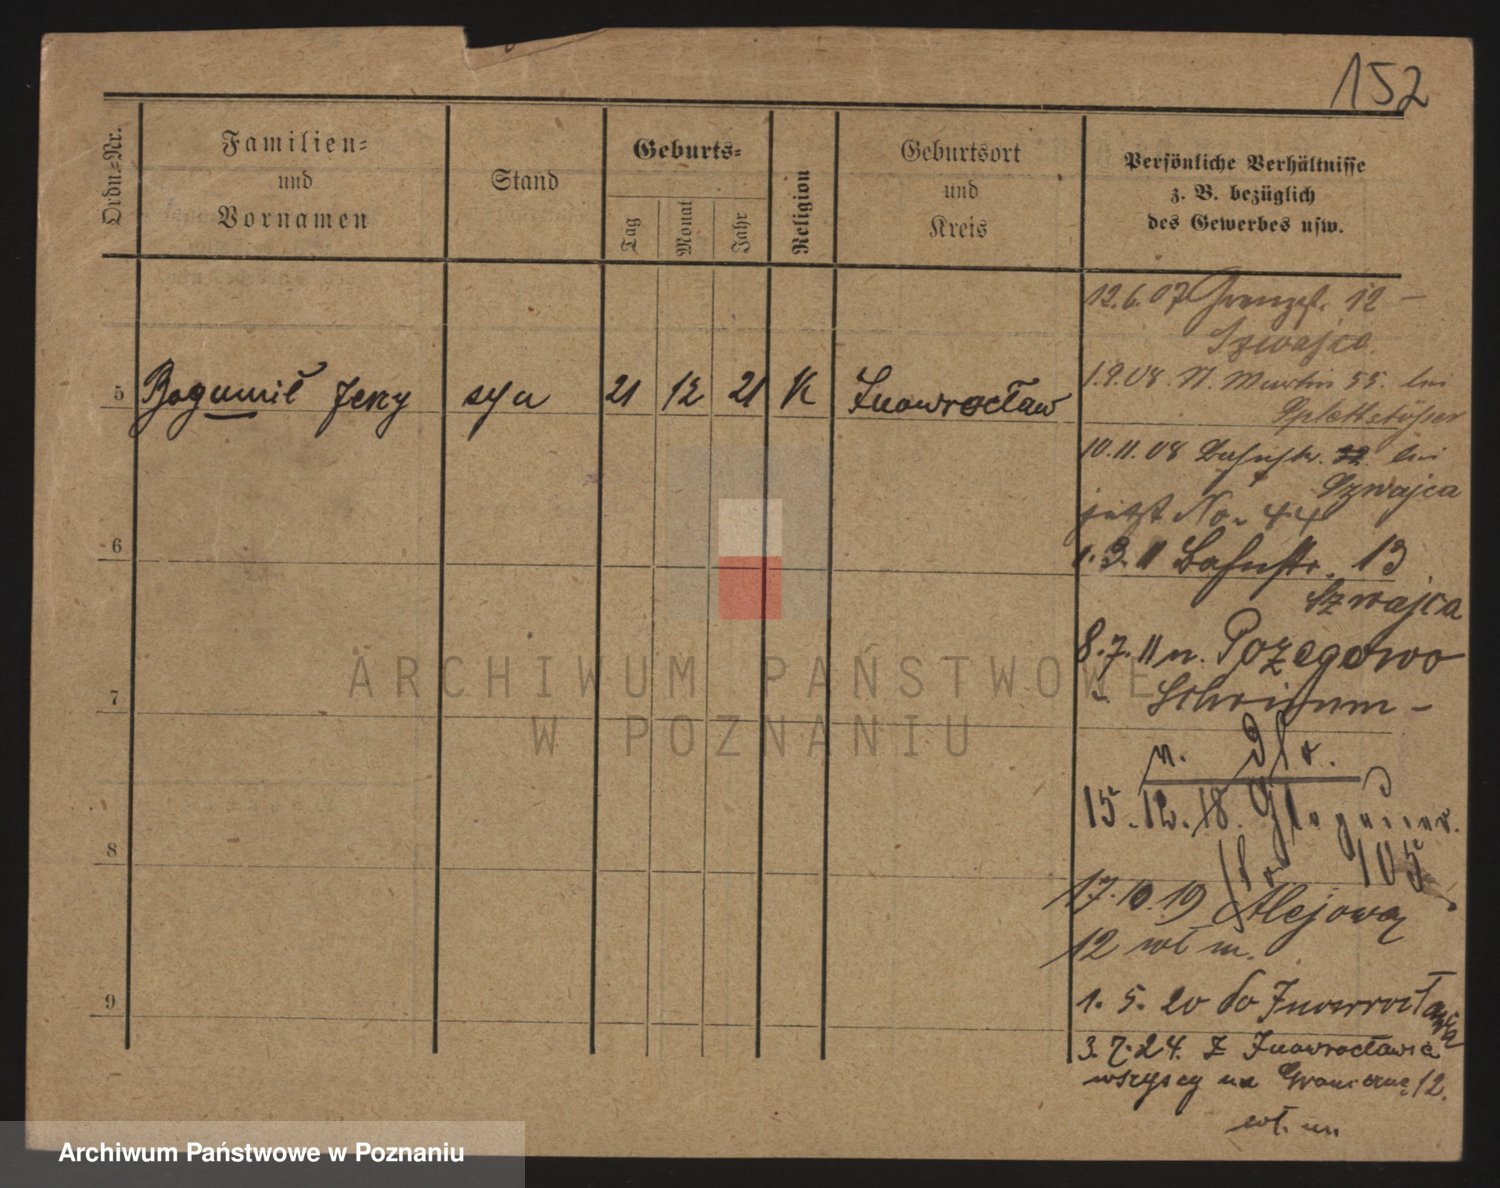 152
Ordn.-Nr.
Familien-
und
Vornamen
Stand
Geburts-
Tag
Monat
Jahr
Religion
Geburtsort
und
Kreis
Persönliche Verhältnisse
z. B. bezüglich
des Gewerbes usw.
12.6.07 Grenzst. 12 –
Szwajca
5 Bogumił Jerzy syn 21 12 21 K Inowrocław
1.9.08. St. Martin 55. bei
Splettstößer
10.11.08 Bahnstr. 32. bei
Szwajca
jetzt No. 44
6
1.3.11 Bahnstr. 13
Szwajca
8.7.11 n. Pożegowo
Schrimm –
7
n.
15.12.18. Glogauer
str 105
8
17.10.19 Alejowa
12 wł m.
9
1. 5. 20 do Inowrocławia
3.7.24. z Inowrocławia
wszyscy na Graniczne 12.
wł. m
ARCHIWUM PAŃSTWOWE
W POZNANIU
Archiwum Państwowe w Poznaniu